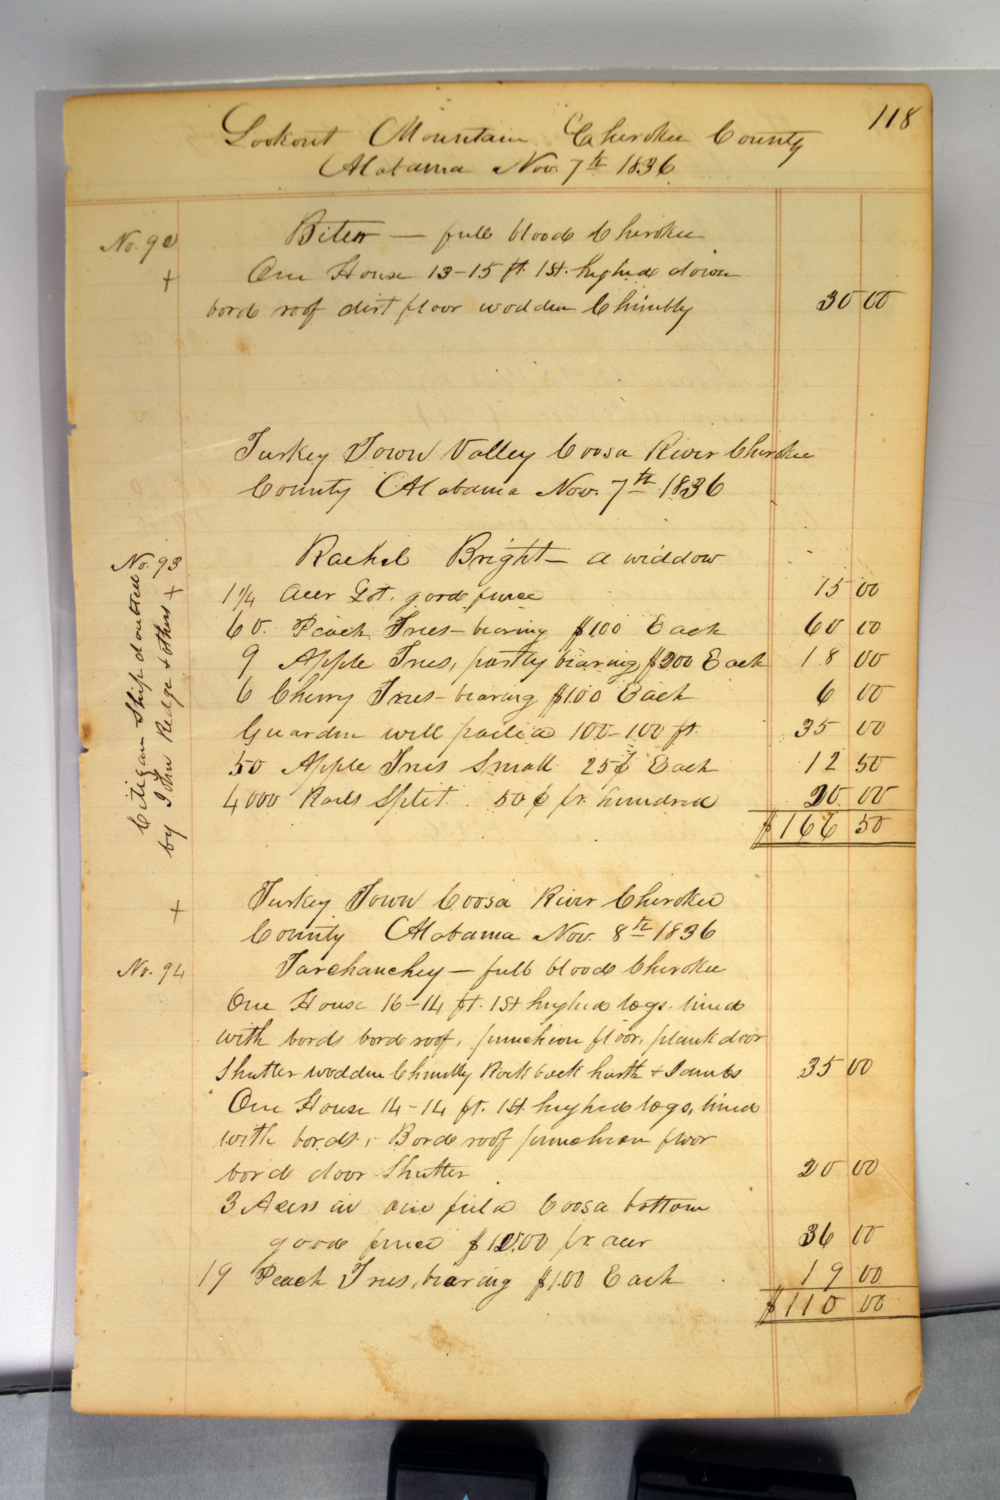 118
Lookout Mountain Cherokee County
Alabama Nov. 7th 1836
No. 92
Biter — full blood Cherokee
+ One House 13-15 ft. 1st. highed down
bord roof dirt floor wodden Chimbly 30 00
Turkey Town Valley Coosa River Cherokee
County Alabama Nov. 7th 1836
No. 93
Rachel Bright — a widdow
1 1/4 Acer Lot. good fence 15 00
60. Peach Trees — bearing $100 Each 60 00
9 Apple Trees, partly bearing $200 Each 18 00
6 Cherry Trees — bearing $100 Each 6 00
Guarden well pailed 100-100 ft. 35 00
50 Apple Trees Small 25¢ Each 12 50
4000 Rails Split. 50¢ pr. hundred 20 00
$166 50
Citizan Ship doubted
by John Ridge & others +
+ Turkey Town Coosa River Cherokee
County Alabama Nov. 8th 1836
No. 94
Tarchanchey — full blood Cherokee
One House 16-14 ft. 1st highed logs. lined
with bords bord roof, puncheon floor, plank door
Shutter wodden Chimbly Rock back harth & Jambs 35 00
One House 14-14 ft. 1st. highed logs, lined
with bords, Bord roof puncheon floor
bord door Shutter 20 00
3 Acers in one field Coosa bottom
good fence $12.00 pr. acer 36 00
19 Peach Trees, bearing $1.00 Each 19 00
$110 00